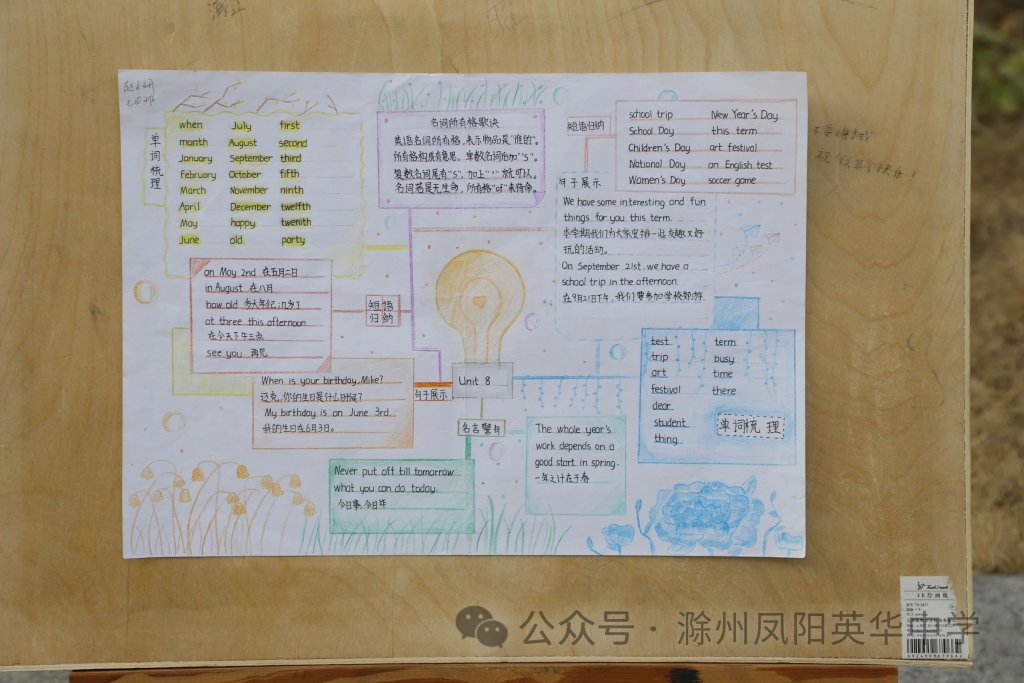 单词梳理
when July first
month August second
January September third
February October fifth
March November ninth
April December twelfth
May happy twenith
June old party
名词所有格歌诀
英语名词所有格,表示物品是"谁的"。
所有格构成有意思,单数名词后加"'s"。
复数名词尾有"s",加上"'"就可以。
名词若是无生命,所有格"of"来待命。
短语归纳
school trip New Year's Day
School Day this term
Children's Day art festival
National Day an English test
Women's Day soccer game
句子展示
We have some interesting and fun
things for you this term.
本学期我们为大家安排一些有趣又好
玩的活动。
On September 21st, we have a
school trip in the afternoon.
在9月21日下午,我们要参加学校郊游.
on May 2nd 在五月二日
in August 在八月
how old 多大年纪;几岁了
at three this afternoon
在今天下午三点
see you 再见
短语
归纳
When is your birthday, Mike?
迈克,你的生日是什么时候?
My birthday is on June 3rd.
我的生日在6月3日。
句子展示
Unit 8
名言警句
Never put off till tomorrow
what you can do today.
今日事,今日毕
The whole year's
work depends on a
good start in spring.
一年之计在于春
test term
trip busy
art time
festival there
dear
student
thing
单词梳理
公众号 · 滁州凤阳英华中学